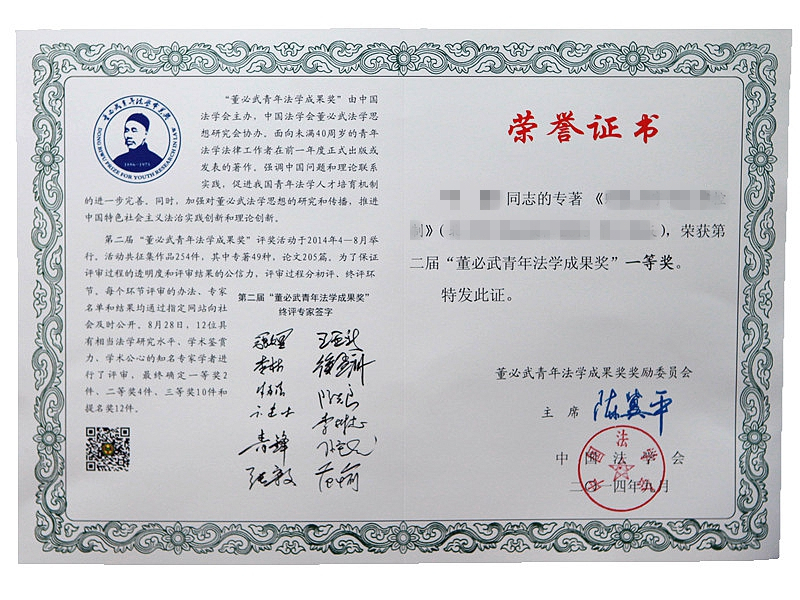 董必武青年法学成果奖
DONG BIWU PRIZE FOR YOUTH RESEARCH IN LAW
1886-1975
“董必武青年法学成果奖”由中国
法学会主办，中国法学会董必武法学思
想研究会协办。面向未满40周岁的青年
法学法律工作者在前一年度正式出版或
发表的著作。强调中国问题和理论联系
实践，促进我国青年法学人才培育机制
的进一步完善。同时，加强对董必武法学思想的研究和传播，推进
中国特色社会主义法治实践创新和理论创新。
第二届“董必武青年法学成果奖”评奖活动于2014年4—8月举
行。活动共征集作品254件，其中专著49种，论文205篇。为了保证
评审过程的透明度和评审结果的公信力，评审过程分初评、终评环
节。每个环节评审的办法、专家
名单和结果均通过指定网站向社
会及时公开。8月28日，12位具
有相当法学研究水平、学术鉴赏
力、学术公心的知名专家学者进
行了评审，最终确定一等奖2
件、二等奖4件、三等奖10件和
提名奖12件。
第二届“董必武青年法学成果奖”
终评专家签字
荣誉证书
同志的专著《
》（
），荣获第
二届“董必武青年法学成果奖”一等奖。
特发此证。
董必武青年法学成果奖奖励委员会
主 席 陈冀平
中国法学会
二〇一四年九月